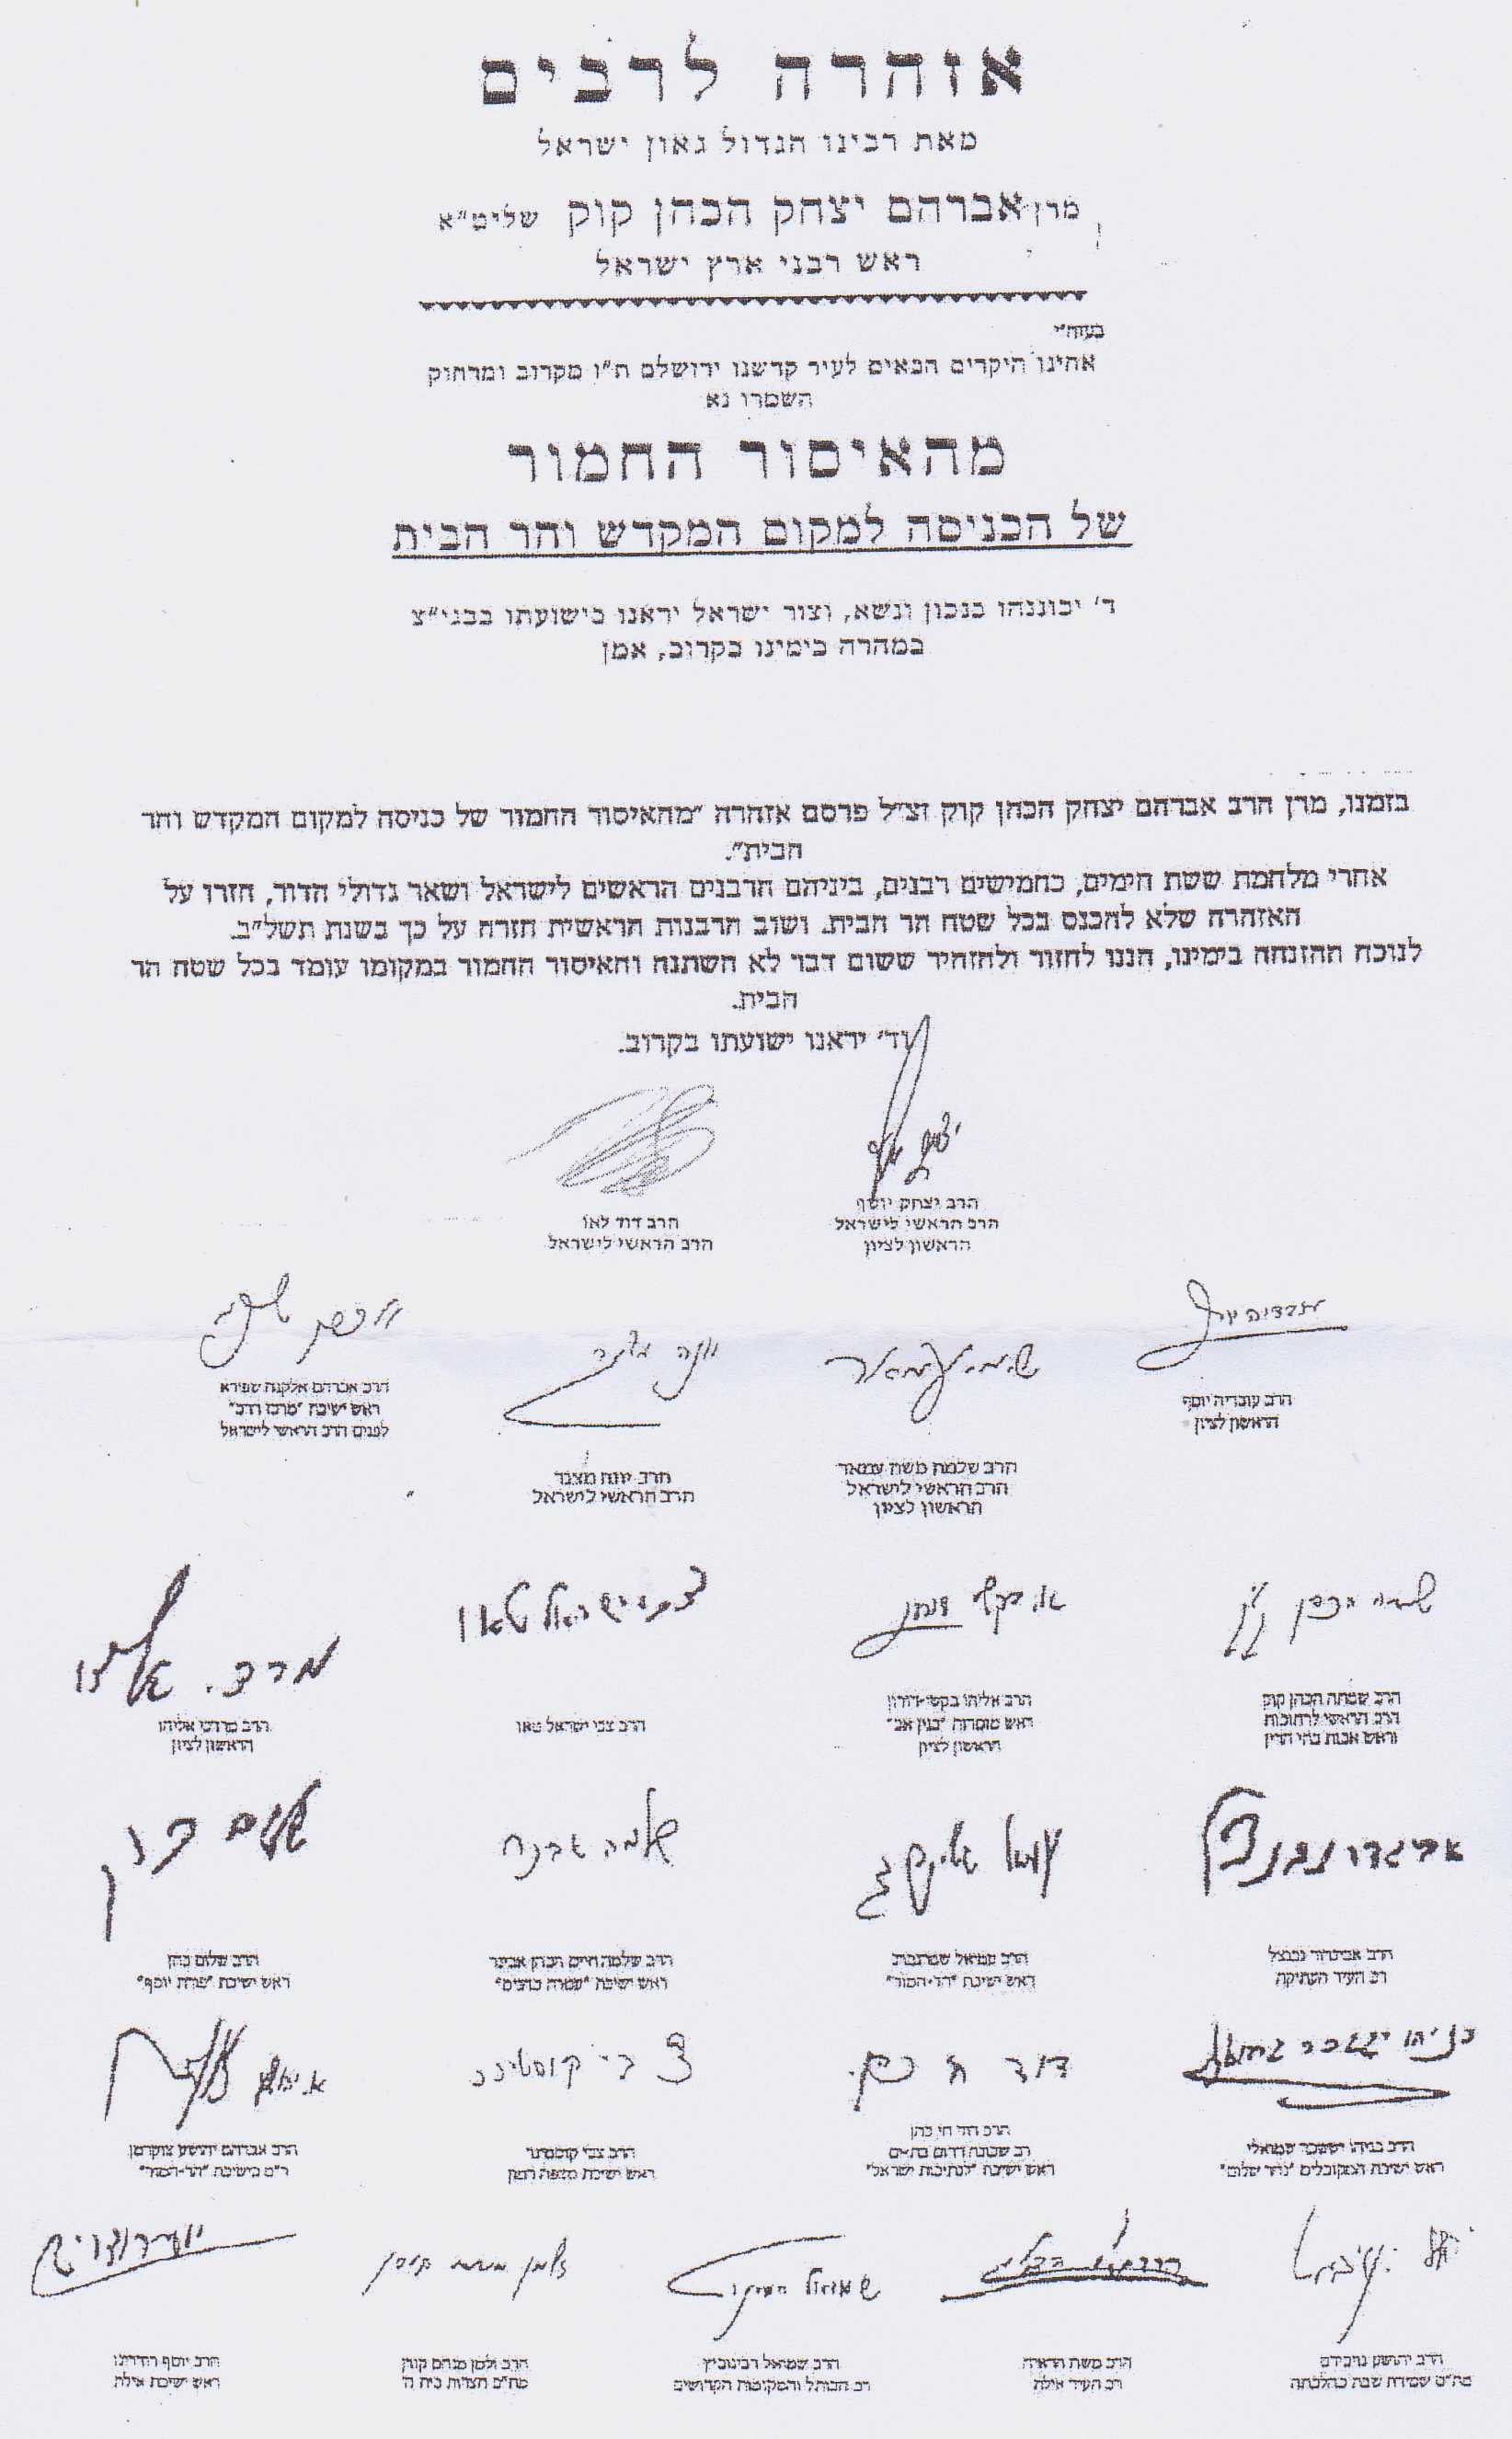 אזהרה לרבים
מאת רבינו הגדול גאון ישראל
מרן אברהם יצחק הכהן קוק שליט״א
ראש רבני ארץ ישראל
בעזה״י
אחינו היקרים הבאים לעיר קדשנו ירושלם ת״ו מקרוב ומרחוק
השמרו נא
מהאיסור החמור
של הכניסה למקום המקדש והר הבית
ד׳ יכוננהו בנכון ונשא, וצור ישראל יראנו בישועתו בבני״צ
במהרה בימינו בקרוב, אמן
בזמנו, מרן הרב אברהם יצחק הכהן קוק זצ״ל פרסם אזהרה ״מהאיסור החמור של כניסה למקום המקדש והר
הבית״.
אחרי מלחמת ששת הימים, כחמישים רבנים, ביניהם הרבנים הראשים לישראל ושאר גדולי הדור, חזרו על
האזהרה שלא להכנס בכל שטח הר הבית. ושוב הרבנות הראשית חזרה על כך בשנת תשל״ב.
לנוכח ההזנחה בימינו, הננו לחזור ולהזהיר ששום דבר לא השתנה והאיסור החמור במקומו עומד בכל שטח הר
הבית.
וד׳ יראנו ישועתו בקרוב.
הרב יצחק יוסף
הרב הראשי לישראל
הראשון לציון
הרב דוד לאו
הרב הראשי לישראל
הרב עובדיה יוסף
הראשון לציון
הרב שלמה משה עמאר
הרב הראשי לישראל
הראשון לציון
הרב יונה מצגר
הרב הראשי לישראל
הרב אברהם אלקנה שפירא
ראש ישיבת ״מרכז הרב״
לפנים הרב הראשי לישראל
הרב שמחה הכהן קוק
הרב הראשי לרחובות
וראש אבות בתי הדין
הרב אליהו בקשי-דורון
ראש מוסדות ״בנין אב״
הראשון לציון
הרב צבי ישראל טאו
הרב מרדכי אליהו
הראשון לציון
הרב אביגדור נבנצל
רב העיר העתיקה
הרב שמואל שטרנבוך
ראש ישיבת ״הר-המור״
הרב שלמה חיים הכהן אבינר
ראש ישיבת ״עטרת כהנים״
הרב שלום כהן
ראש ישיבת ״פורת יוסף״
הרב בניהו יששכר שמואלי
ראש ישיבת המקובלים ״נהר שלום״
הרב דוד חי כהן
רב שכונת דרום בת-ים
ראש ישיבת ״לנתיבות ישראל״
הרב צבי קוסטינר
ראש ישיבת מצפה רמון
הרב אברהם יהושע צוקרמן
ר״מ בישיבת ״הר-המור״
הרב יהושע נויבירט
מח״ס שמירת שבת כהלכתה
הרב משה הדאיה
רב העיר אילת
הרב שמואל רבינוביץ
רב הכותל והמקומות הקדושים
הרב זלמן מנחם קורן
מח״ס חצרות בית ה׳
הרב יוסף
ראש ישיבת אילת